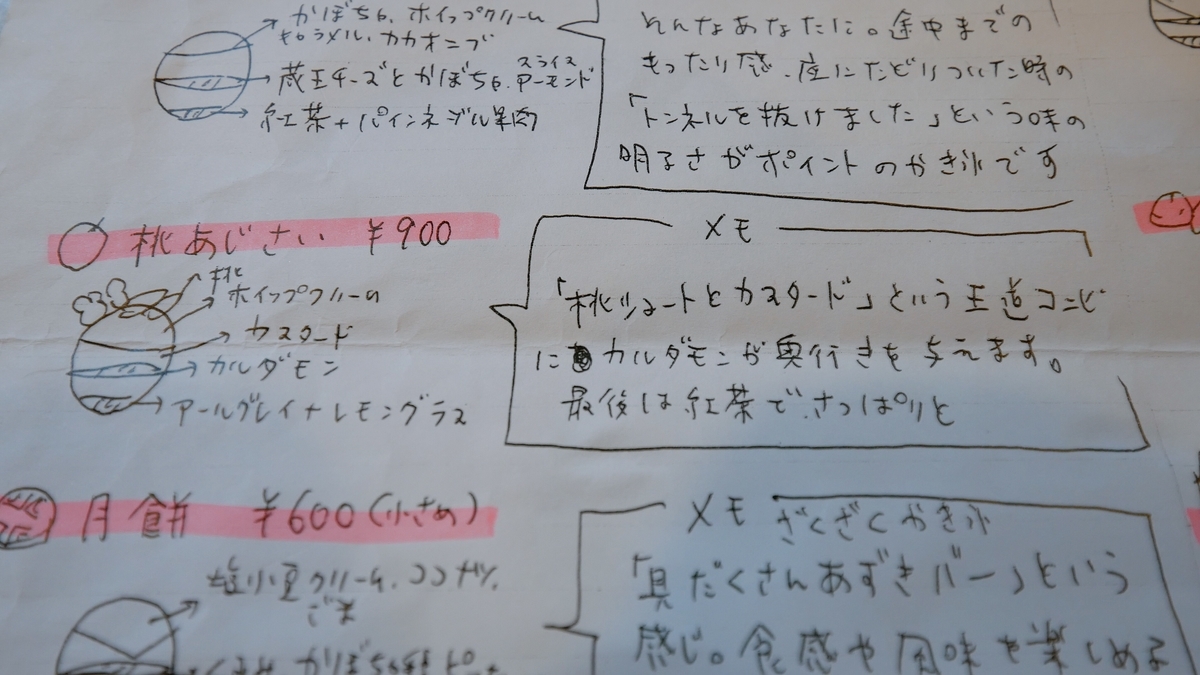 かぼちゃ、ホイップクリーム
キャラメル、カカオニブ
蔵王チーズとかぼちゃ、スライスアーモンド
紅茶+パインネジル羊肉
そんなあなたに。途中までの
もったり感、底にたどりついた時の
「トンネルを抜けました」という味の
明るさがポイントのかき氷です
桃あじさい ¥900
桃
ホイップクリーム
カスタード
カルダモン
アールグレイ+レモングラス
メモ
「桃ジュートとカスタード」という王道コンビ
に カルダモンが奥行きを与えます。
最後は紅茶で、さっぱりと
月餅 ¥600(小さめ)
塩小豆クリーム、ココナツ、
ごま
かぼちゃ種
メモ ざくざくかき氷
「具だくさんあずきバー」という
感じ。食感や風味を楽しめる